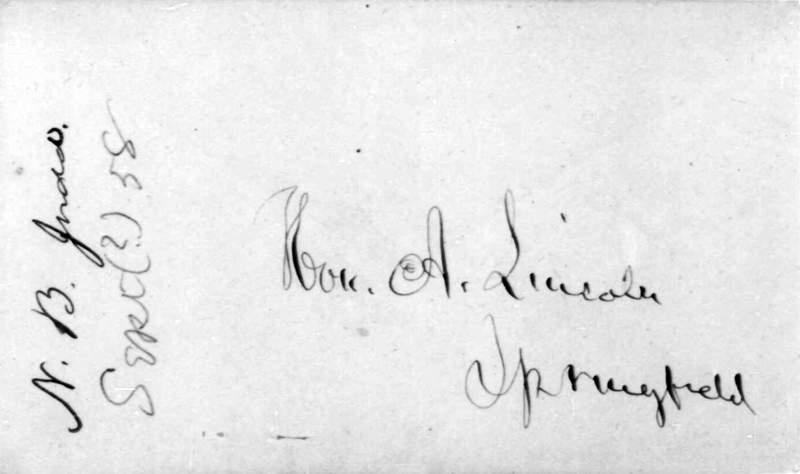 N. B. Judd.
Sept (?) 58
Hon. A. Lincoln
Springfield